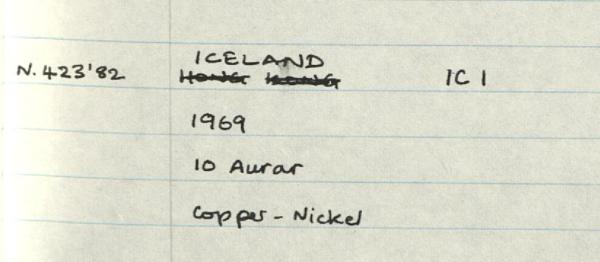 ICELAND
N.423'82 Hong Kong IC 1
1969
10 Aurar
Copper-Nickel